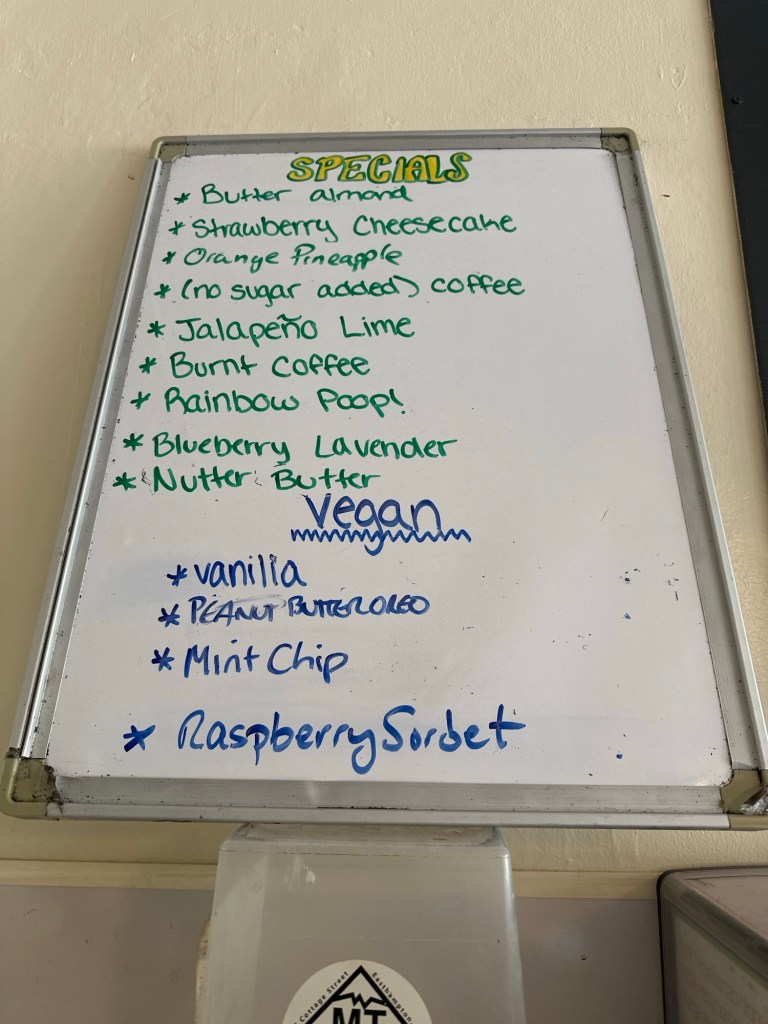 SPECIALS
* Butter almond
* Strawberry Cheesecake
* Orange Pineapple
* (no sugar added) coffee
* Jalapeño Lime
* Burnt Coffee
* Rainbow Poop!
* Blueberry Lavender
* Nutter Butter
Vegan
* vanilla
* PEANUT BUTTER OREO
* Mint Chip
* Raspberry Sorbet
Cottage Street Easthampton
MT